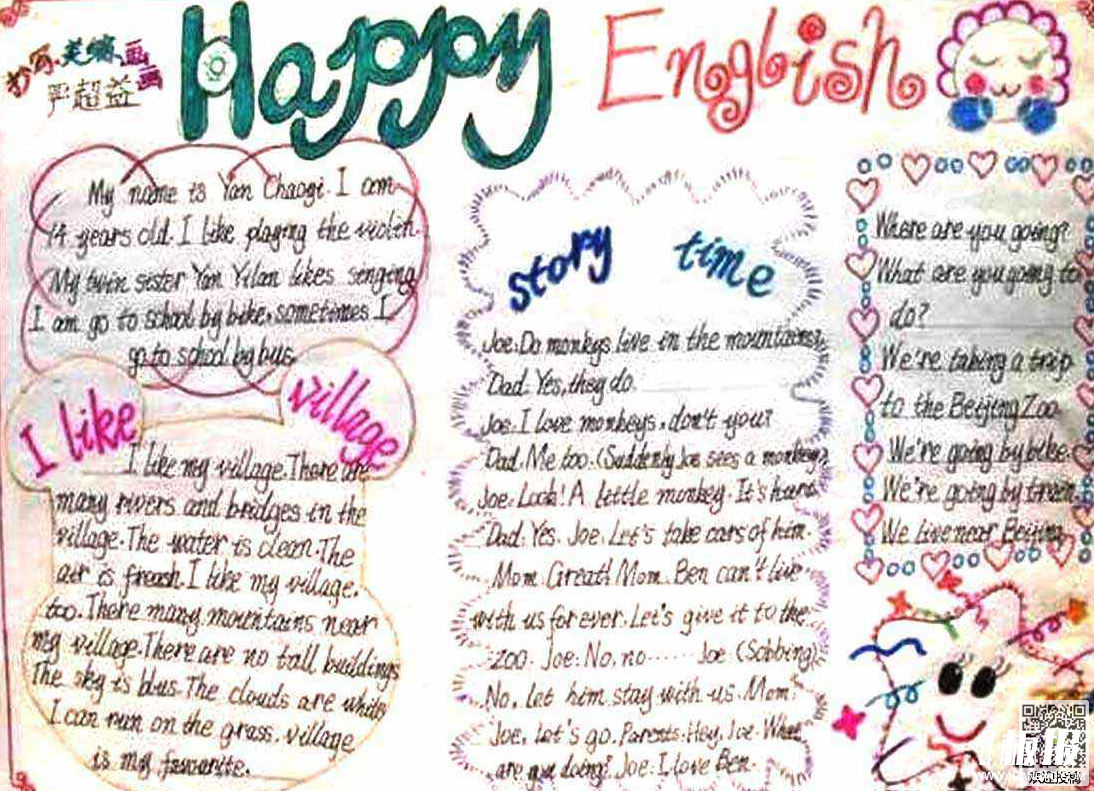 抄写、美编、画画
严超益
Happy English
My name is Yan Chaoyi. I am
14 years old. I like playing the violin.
My twin sister Yan Yilan likes senging
I am go to school by bike, sometimes I
go to school by bus
I like village
I like my village. There are
many rivers and bridges in the
village. The water is clean. The
air is freash I like my village.
too. There many mountains near
my village. There are no tall buildings
The sky is blus. The clouds are white
I can run on the grass. village
is my favourite.
story time
Joe: Do monkys live in the mountains?
Dad: Yes, they do.
Joe: I love monkeys, don't you?
Dad: Me too. (Suddenly Joe sees a monkey)
Joe: Look! A little monkey. It's hurt
Dad: Yes, Joe. Let's take cars of him.
Mom: Great! Mom: Ben can't live
with us forever. Let's give it to the
zoo. Joe: No, no…… Joe (Sobbing)
No, let him stay with us. Mom:
Joe, let's go. Parents: Hey, Joe. What
are you doing? Joe: I love Ben.
Where are you going?
What are you going to
do?
We're taking a trip
to the Beijing Zoo
We're going by bike.
We're going by train.
We live near Beijing